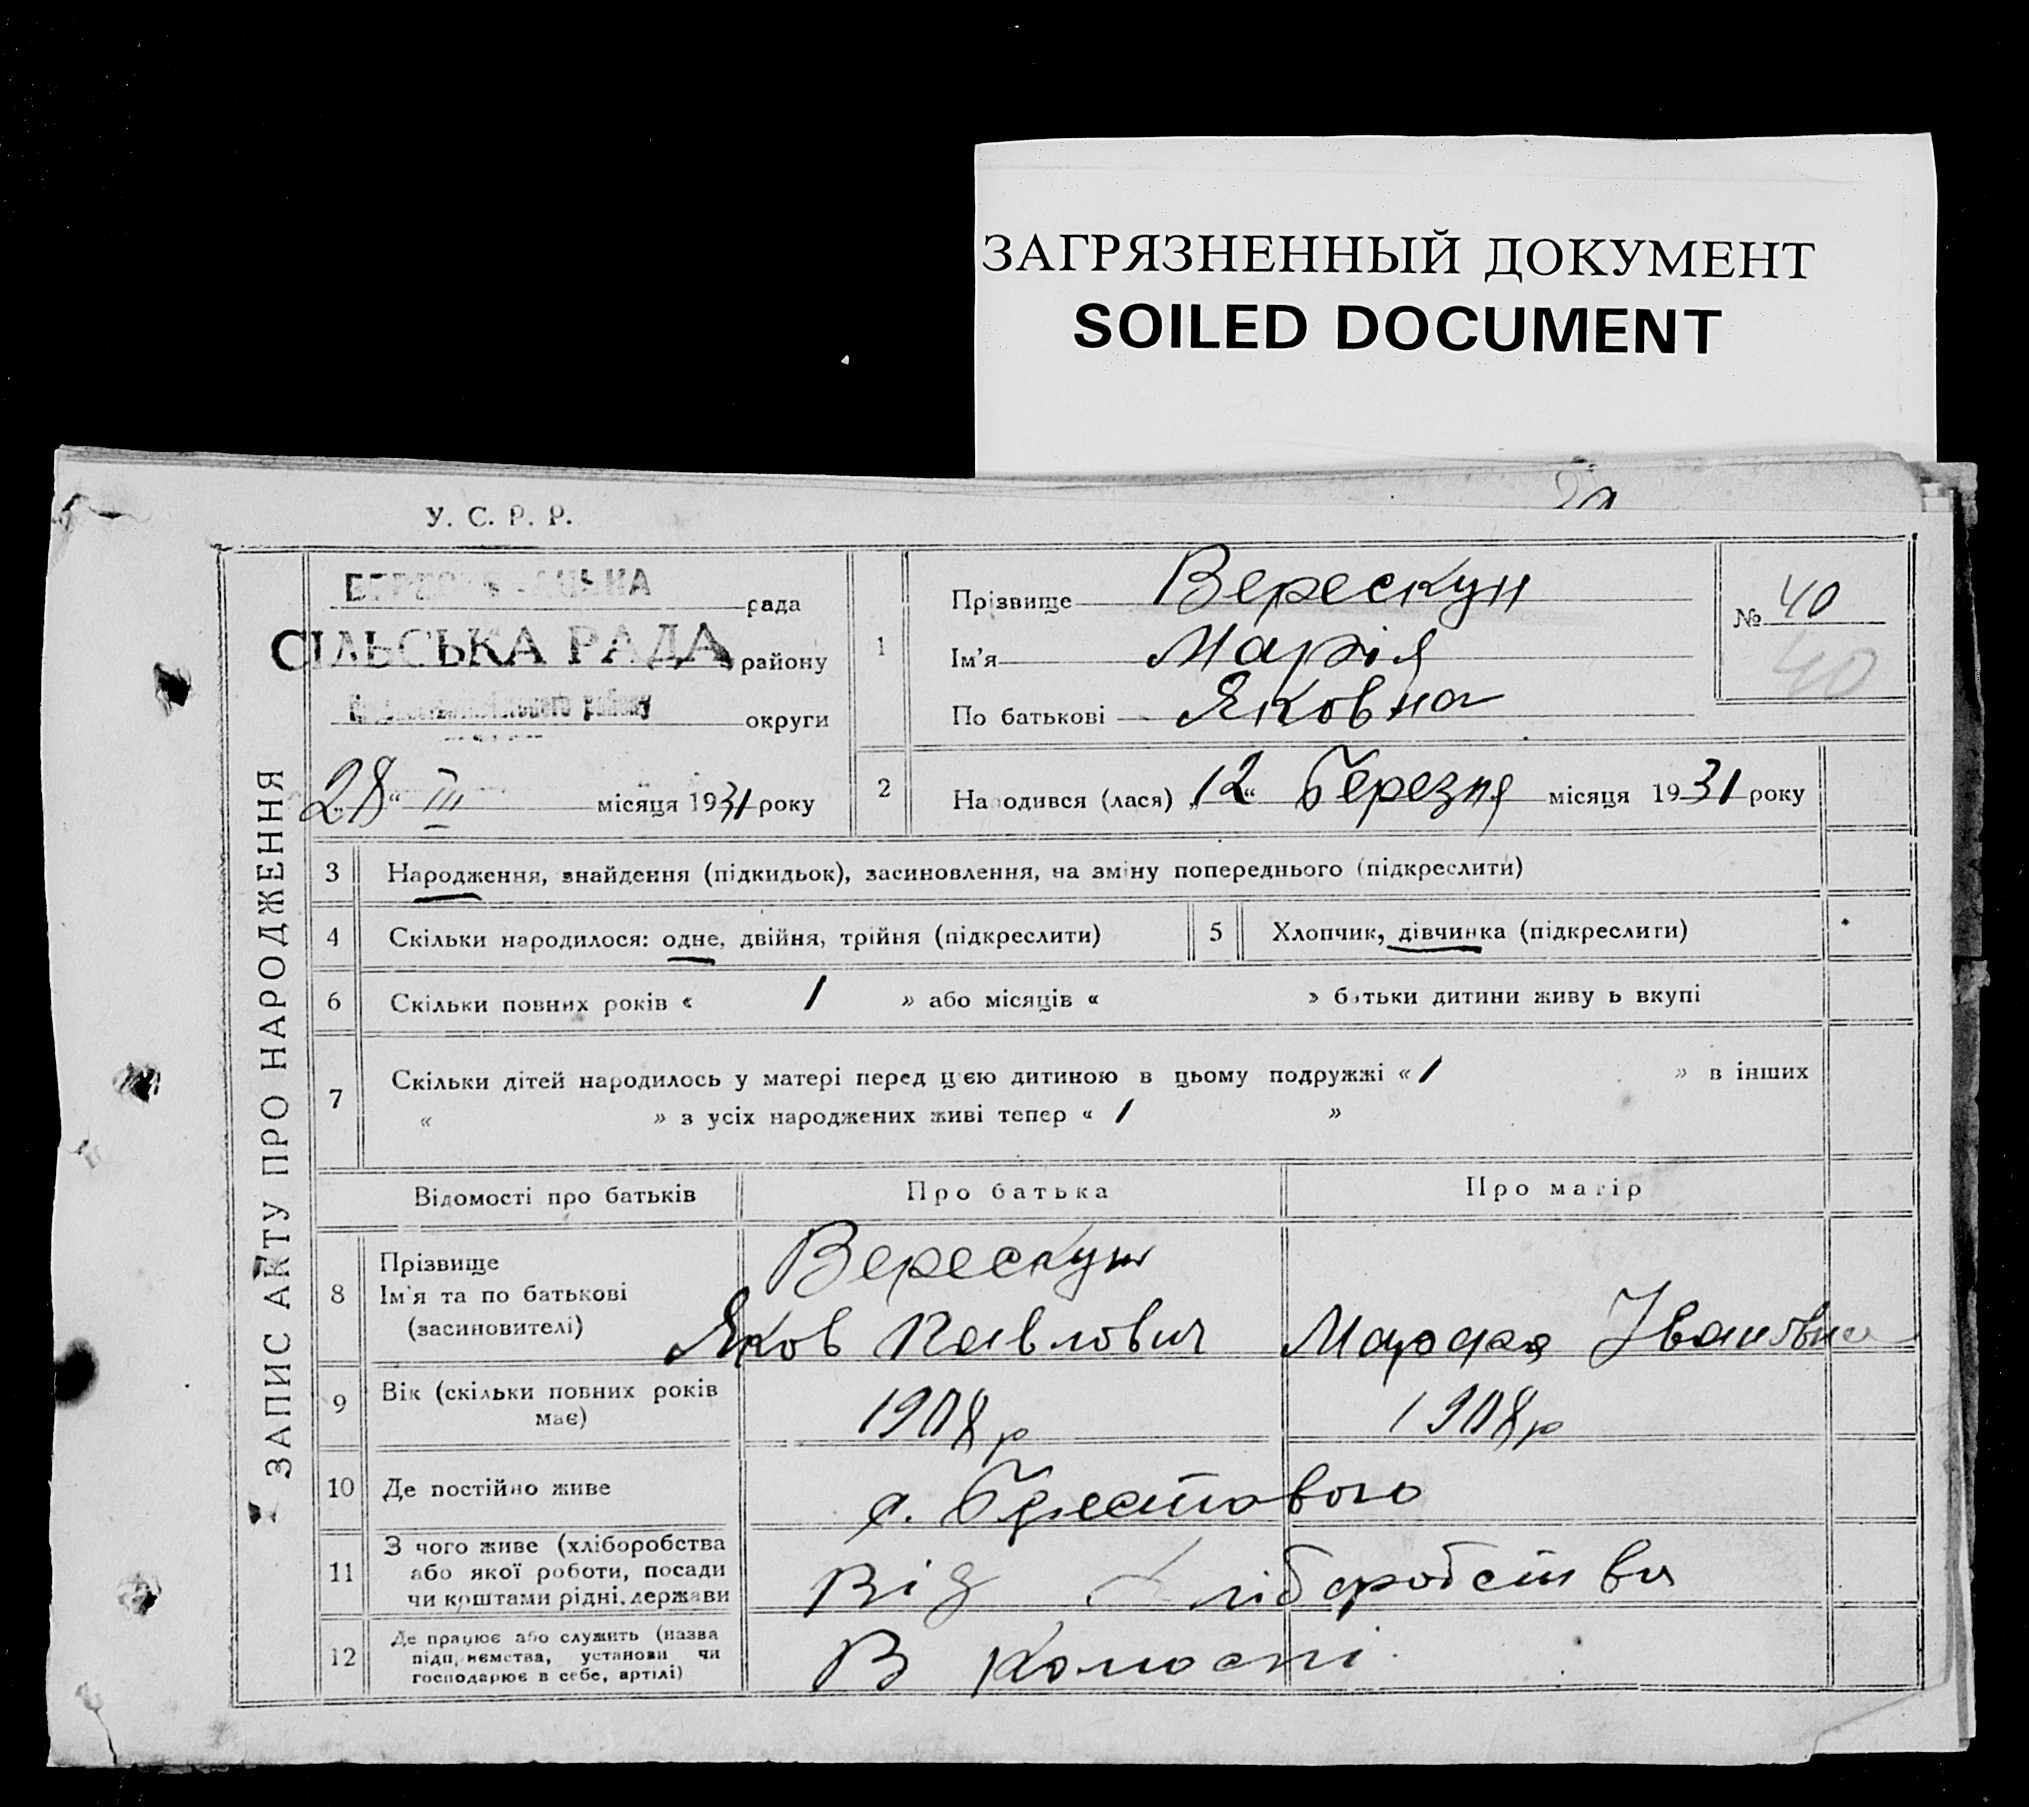 ЗАГРЯЗНЕННЫЙ ДОКУМЕНТ
SOILED DOCUMENT
У. С. Р. Р.
ЗАПИС АКТУ ПРО НАРОДЖЕННЯ
рада
СІЛЬСЬКА РАДА району
району округи
28 “ III місяця 1931 року
1
Прізвище Верескун
Ім’я Марія
По батькові Яковна
№ 40
40
2 Народився (лася) „12“ Березня місяця 1931 року
3 Народження, знайдення (підкидьок), засиновлення, на зміну попереднього (підкреслити)
4 Скільки народилося: одне, двійня, трійня (підкреслити)
5 Хлопчик, дівчинка (підкреслити)
6 Скільки повних років « 1 » або місяців « » батьки дитини живуть вкупі
7 Скільки дітей народилось у матері перед цією дитиною в цьому подружжі « 1 » в інших
« » з усіх народжених живі тепер « 1 »
Відомості про батьків Про батька Про матір
8 Прізвище
Ім’я та по батькові
(засиновителі)
Верескун
Яков Павлович Івановна
9 Вік (скільки повних років
має)
1908 р 1908 р
10 Де постійно живе
с.
11 З чого живе (хліборобства
або якої роботи, посади
чи коштами рідні, держави
Від хліборобства
12 Де працює або служить (назва
підприємства, установи чи
господарює в себе, артілі)
В